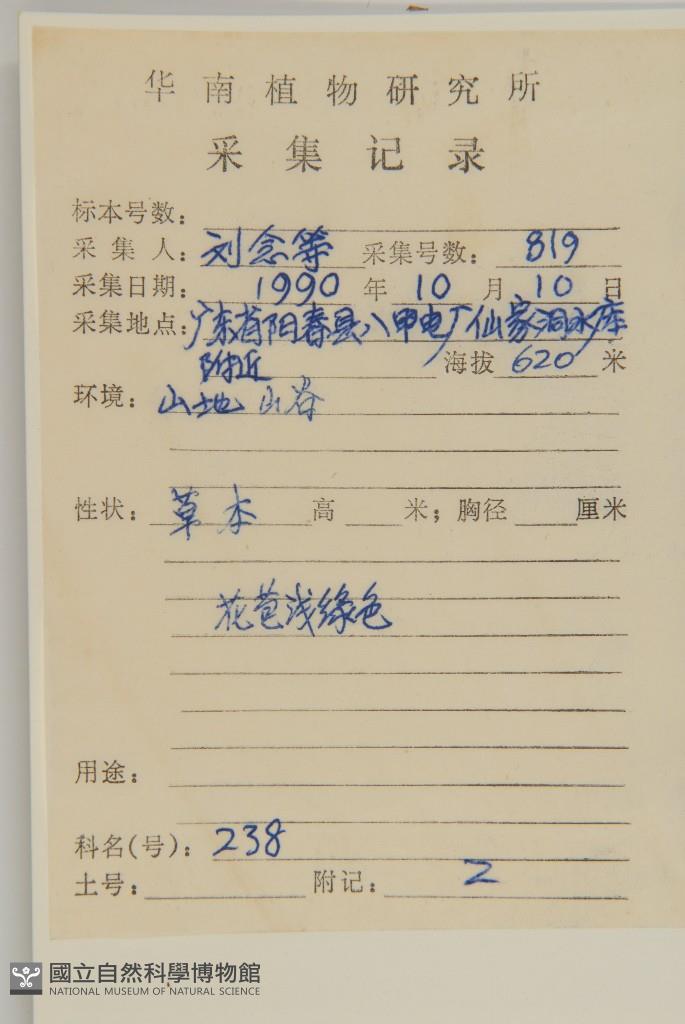 华南植物研究所
采集记录
标本号数:
采集人: 刘念等 采集号数: 819
采集日期: 1990 年 10 月 10 日
采集地点: 广东省阳春县八甲电厂仙家洞水库
附近 海拔 620 米
环境: 山地 山谷
性状: 草本 高 米; 胸径 厘米
花苞浅绿色
用途:
科名(号): 238
土号: 附记: 2
國立自然科學博物館
NATIONAL MUSEUM OF NATURAL SCIENCE